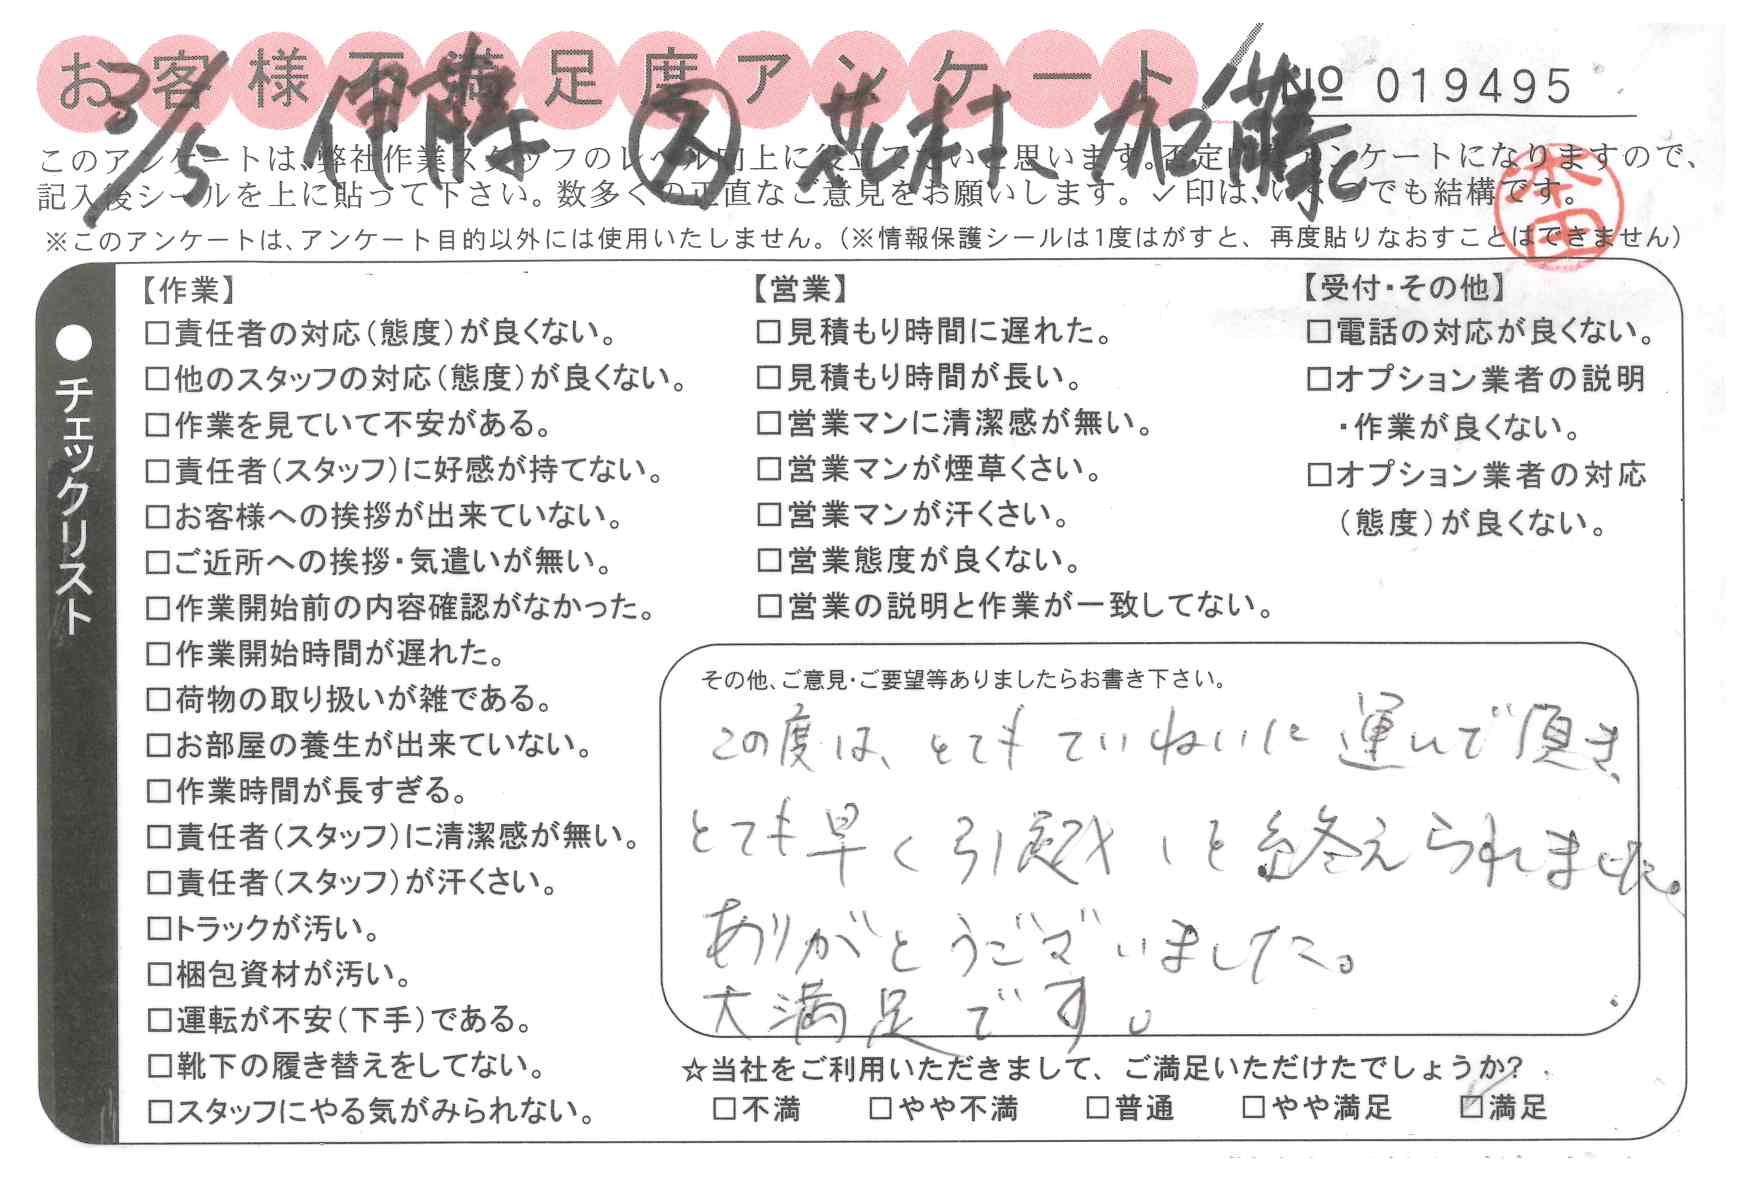 お客様不満足度アンケート
№ 019495
3/5 伊藤 加藤
このアンケートは、弊社作業スタッフのレベル向上に役立てたいと思います。否定的なアンケートになりますので、
記入後シールを上に貼って下さい。数多くの正直なご意見をお願いします。✓印は、いくつでも結構です。
※このアンケートは、アンケート目的以外には使用いたしません。(※情報保護シールは1度はがすと、再度貼りなおすことはできません)
●チェックリスト
【作業】
□責任者の対応(態度)が良くない。
□他のスタッフの対応(態度)が良くない。
□作業を見ていて不安がある。
□責任者(スタッフ)に好感が持てない。
□お客様への挨拶が出来ていない。
□ご近所への挨拶・気遣いが無い。
□作業開始前の内容確認がなかった。
□作業開始時間が遅れた。
□荷物の取り扱いが雑である。
□お部屋の養生が出来ていない。
□作業時間が長すぎる。
□責任者(スタッフ)に清潔感が無い。
□責任者(スタッフ)が汗くさい。
□トラックが汚い。
□梱包資材が汚い。
□運転が不安(下手)である。
□靴下の履き替えをしてない。
□スタッフにやる気がみられない。
【営業】
□見積もり時間に遅れた。
□見積もり時間が長い。
□営業マンに清潔感が無い。
□営業マンが煙草くさい。
□営業マンが汗くさい。
□営業態度が良くない。
□営業の説明と作業が一致してない。
【受付・その他】
□電話の対応が良くない。
□オプション業者の説明
・作業が良くない。
□オプション業者の対応
(態度)が良くない。
その他、ご意見・ご要望等ありましたらお書き下さい。
この度は、とてもていねいに運んで頂き、
とても早く引越しを終えられました。
ありがとうございました。
大満足です。
☆当社をご利用いただきまして、ご満足いただけたでしょうか?
□不満 □やや不満 □普通 □やや満足 ☑満足